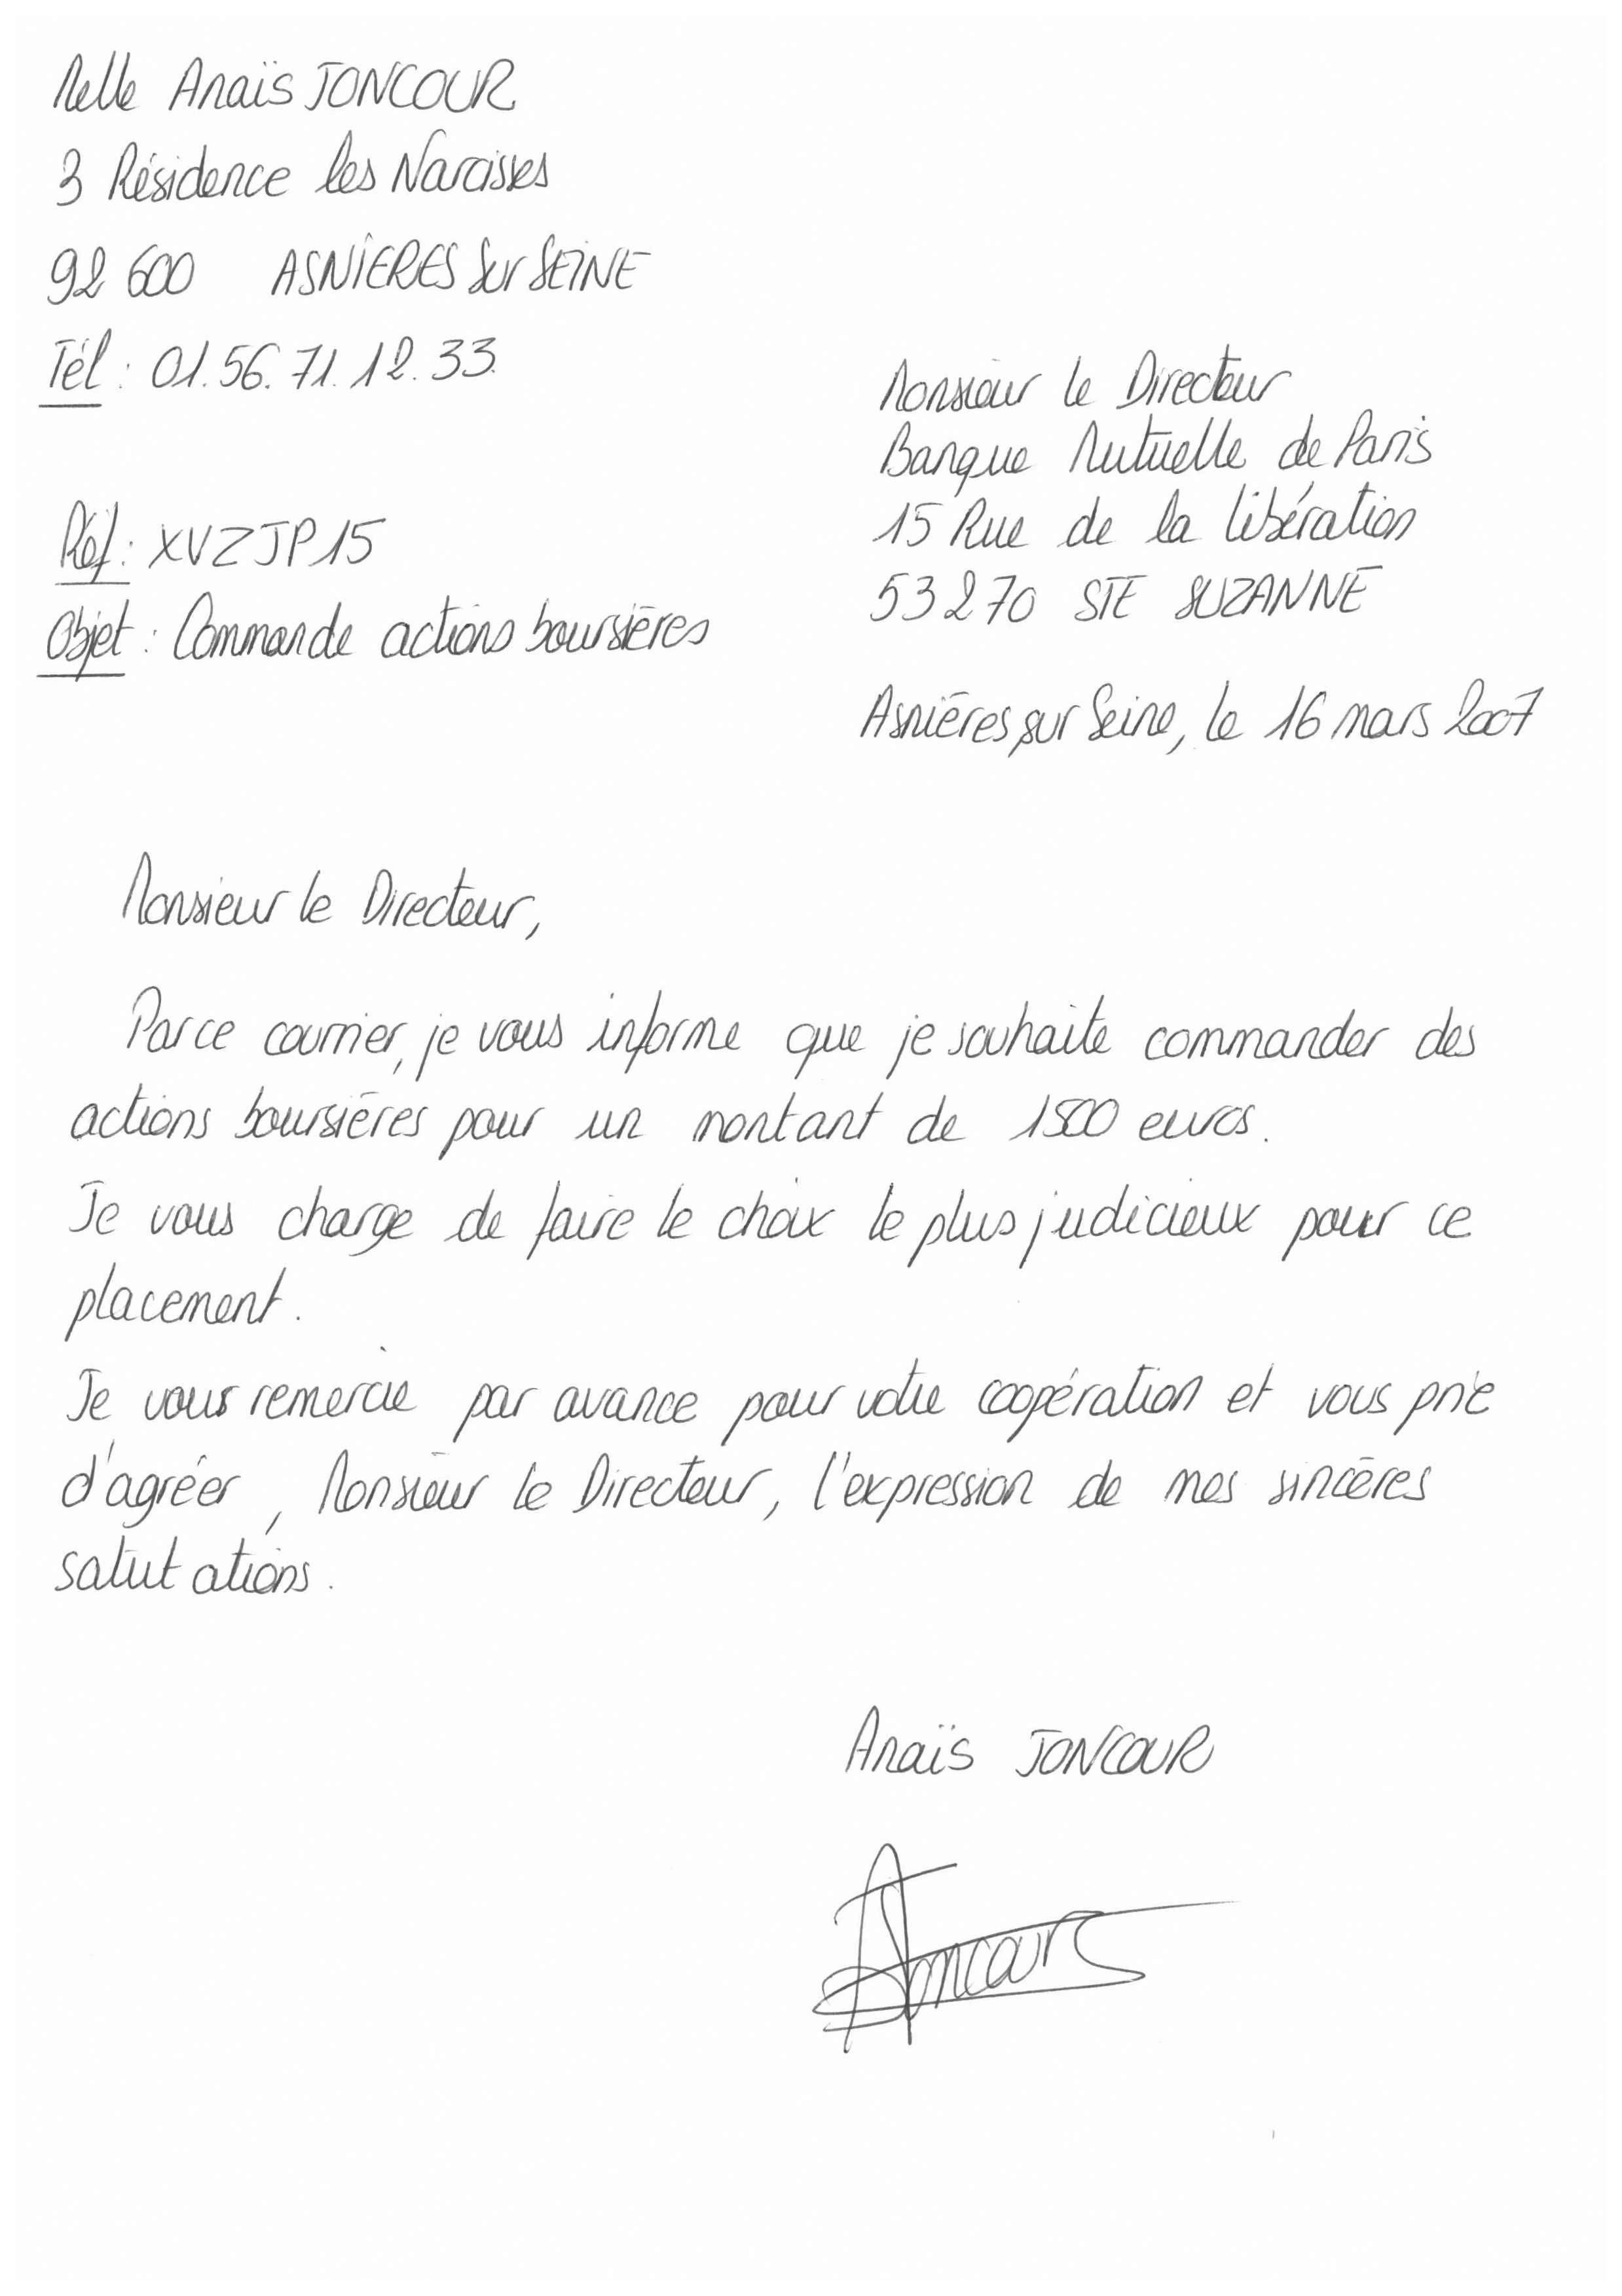 Melle Anaïs JONCOUR
3 Résidence les Narcisses
92 600 ASNIERES sur SEINE
Tél : 01.56.71.12.33.
Monsieur le Directeur
Banque Mutuelle de Paris
15 Rue de la libération
53270 STE SUZANNE
Réf : XVZJP15
Objet : Commande actions boursières
Asnières sur Seine, le 16 mars 2007
Monsieur le Directeur,
Par ce courrier, je vous informe que je souhaite commander des
actions boursières pour un montant de 1500 euros.
Je vous charge de faire le choix le plus judicieux pour ce
placement.
Je vous remercie par avance pour votre coopération et vous prie
d'agréer, Monsieur le Directeur, l'expression de mes sincères
salutations.
Anaïs JONCOUR
AJoncour